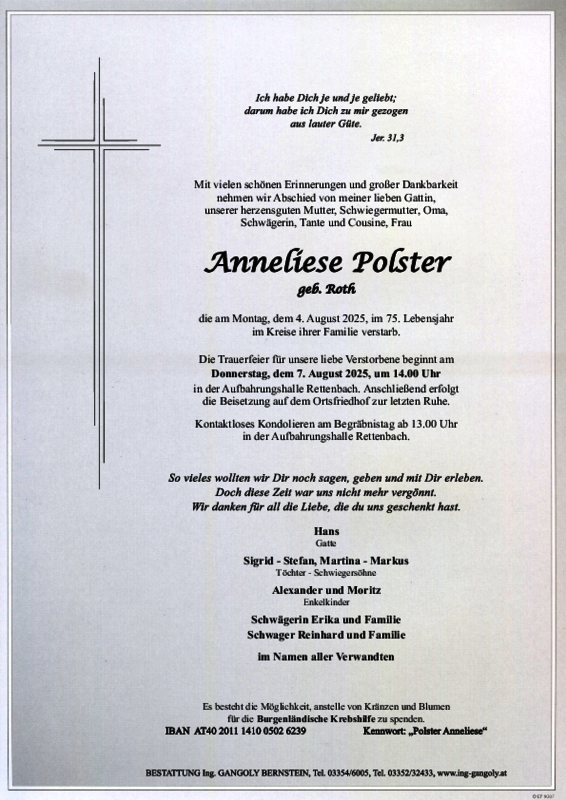 Ich habe Dich je und je geliebt;
darum habe ich Dich zu mir gezogen
aus lauter Güte.
Jer. 31,3
Mit vielen schönen Erinnerungen und großer Dankbarkeit
nehmen wir Abschied von meiner lieben Gattin,
unserer herzensguten Mutter, Schwiegermutter, Oma,
Schwägerin, Tante und Cousine, Frau
Anneliese Polster
geb. Roth
die am Montag, dem 4. August 2025, im 75. Lebensjahr
im Kreise ihrer Familie verstarb.
Die Trauerfeier für unsere liebe Verstorbene beginnt am
Donnerstag, dem 7. August 2025, um 14.00 Uhr
in der Aufbahrungshalle Rettenbach. Anschließend erfolgt
die Beisetzung auf dem Ortsfriedhof zur letzten Ruhe.
Kontaktloses Kondolieren am Begräbnistag ab 13.00 Uhr
in der Aufbahrungshalle Rettenbach.
So vieles wollten wir Dir noch sagen, geben und mit Dir erleben.
Doch diese Zeit war uns nicht mehr vergönnt.
Wir danken für all die Liebe, die du uns geschenkt hast.
Hans
Gatte
Sigrid - Stefan, Martina - Markus
Töchter - Schwiegersöhne
Alexander und Moritz
Enkelkinder
Schwägerin Erika und Familie
Schwager Reinhard und Familie
im Namen aller Verwandten
Es besteht die Möglichkeit, anstelle von Kränzen und Blumen
für die Burgenländische Krebshilfe zu spenden.
IBAN AT40 2011 1410 0502 6239 Kennwort: „Polster Anneliese“
BESTATTUNG Ing. GANGOLY BERNSTEIN, Tel. 03354/6005, Tel. 03352/32433, www.ing-gangoly.at